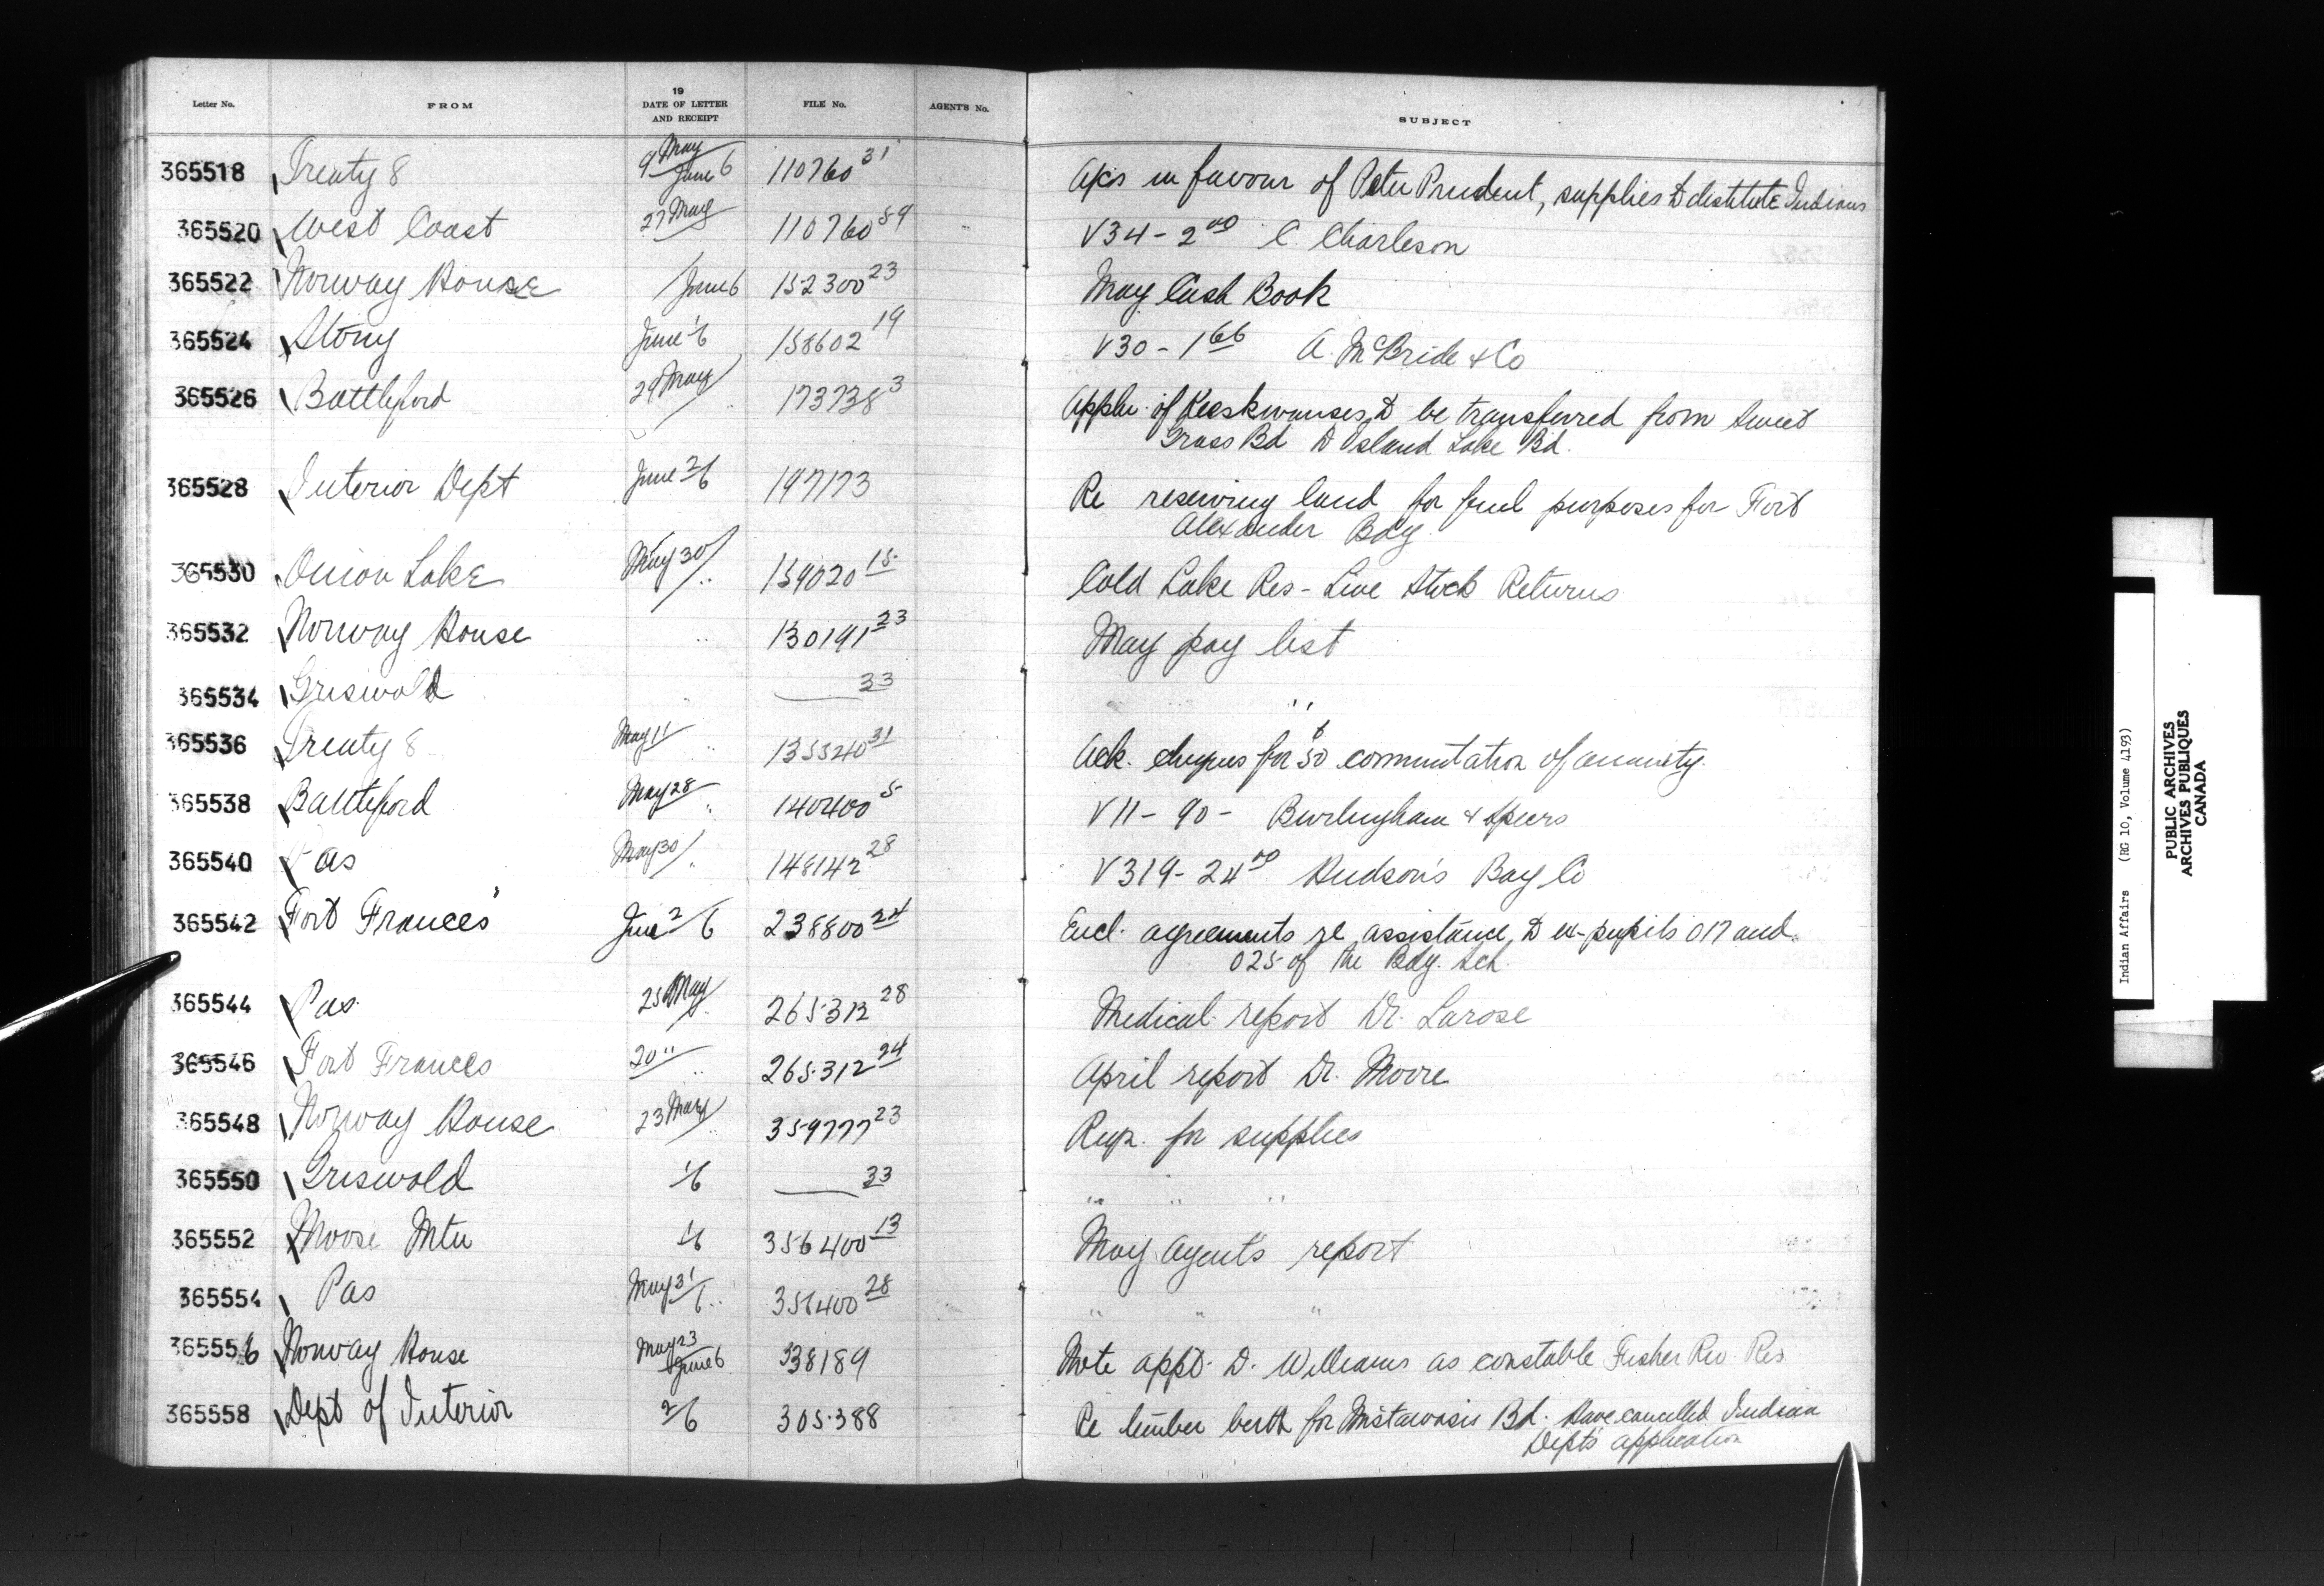 Letter No. FROM 19 DATE OF LETTER AND RECEIPT FILE No. AGENT'S No. SUBJECT
365518 Treaty 8 9 May June 6 110760 31 A/cs in favour of Peter Prudent, supplies to destitute Indians
365520 West Coast 27 May 110760 59 V34 - 2 00 C. Charleson
365522 Norway House / June 6 152300 23 May Cash Book
365524 Stony June 1/6 158602 19 V30 - 1 66 A. McBride & Co
365526 Battleford 29 May / " 173738 3 Appln. of to be transferred from Sweet
Grass Bd to Island Lake Bd.
365528 Interior Dept June 2/6 197173 Re reserving land for fuel purposes for Fort
Alexander Bdg
365530 Onion Lake May 30 / " 159020 15 Cold Lake Res - Live Stock Returns
365532 Norway House " 130191 23 May pay list
365534 Griswold " — 33 "
365536 Treaty 8 May 11 " 135540 31 Ack. cheques for $50 commutation of annuity.
365538 Battleford May 28 " 140400 5 V11 - 90 - Burlingham & Speers
365540 Pas May 30 / " 148142 28 V319 - 24 00 Hudson's Bay Co
365542 Fort Frances June 2/6 238800 24 Encl. agreements re assistance to ex-pupils 017 and
025 of the Bdg. Sch.
365544 Pas 25 May 265312 28 Medical report Dr. Larose
365546 Fort Frances 20 " " 265312 24 April report Dr. Moore
365548 Norway House 23 May " 359777 23 Reqn. for supplies
365550 Griswold 1/6 — 33 " " "
365552 Moose Mtn 1/6 356400 13 May Agent's report
365554 Pas May 31/6 " 356400 28 " " "
365556 Norway House May 23 June 6 338189 Note appt. D. Williams as constable Fisher Riv. Res
365558 Dept of Interior 2/6 305388 Re timber berth for Mistawasis Bd. Have cancelled Indian
Dept's application
Indian Affairs (RG 10, Volume 4193)
PUBLIC ARCHIVES
ARCHIVES PUBLIQUES
CANADA